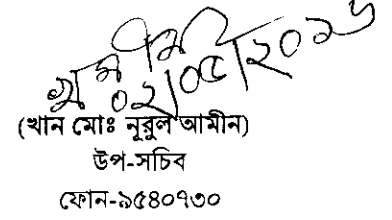 ০২/০৫/২০১৬
(খান মোঃ নূরুল আমীন)
উপ-সচিব
ফোন-৯৫৪০৭৩০